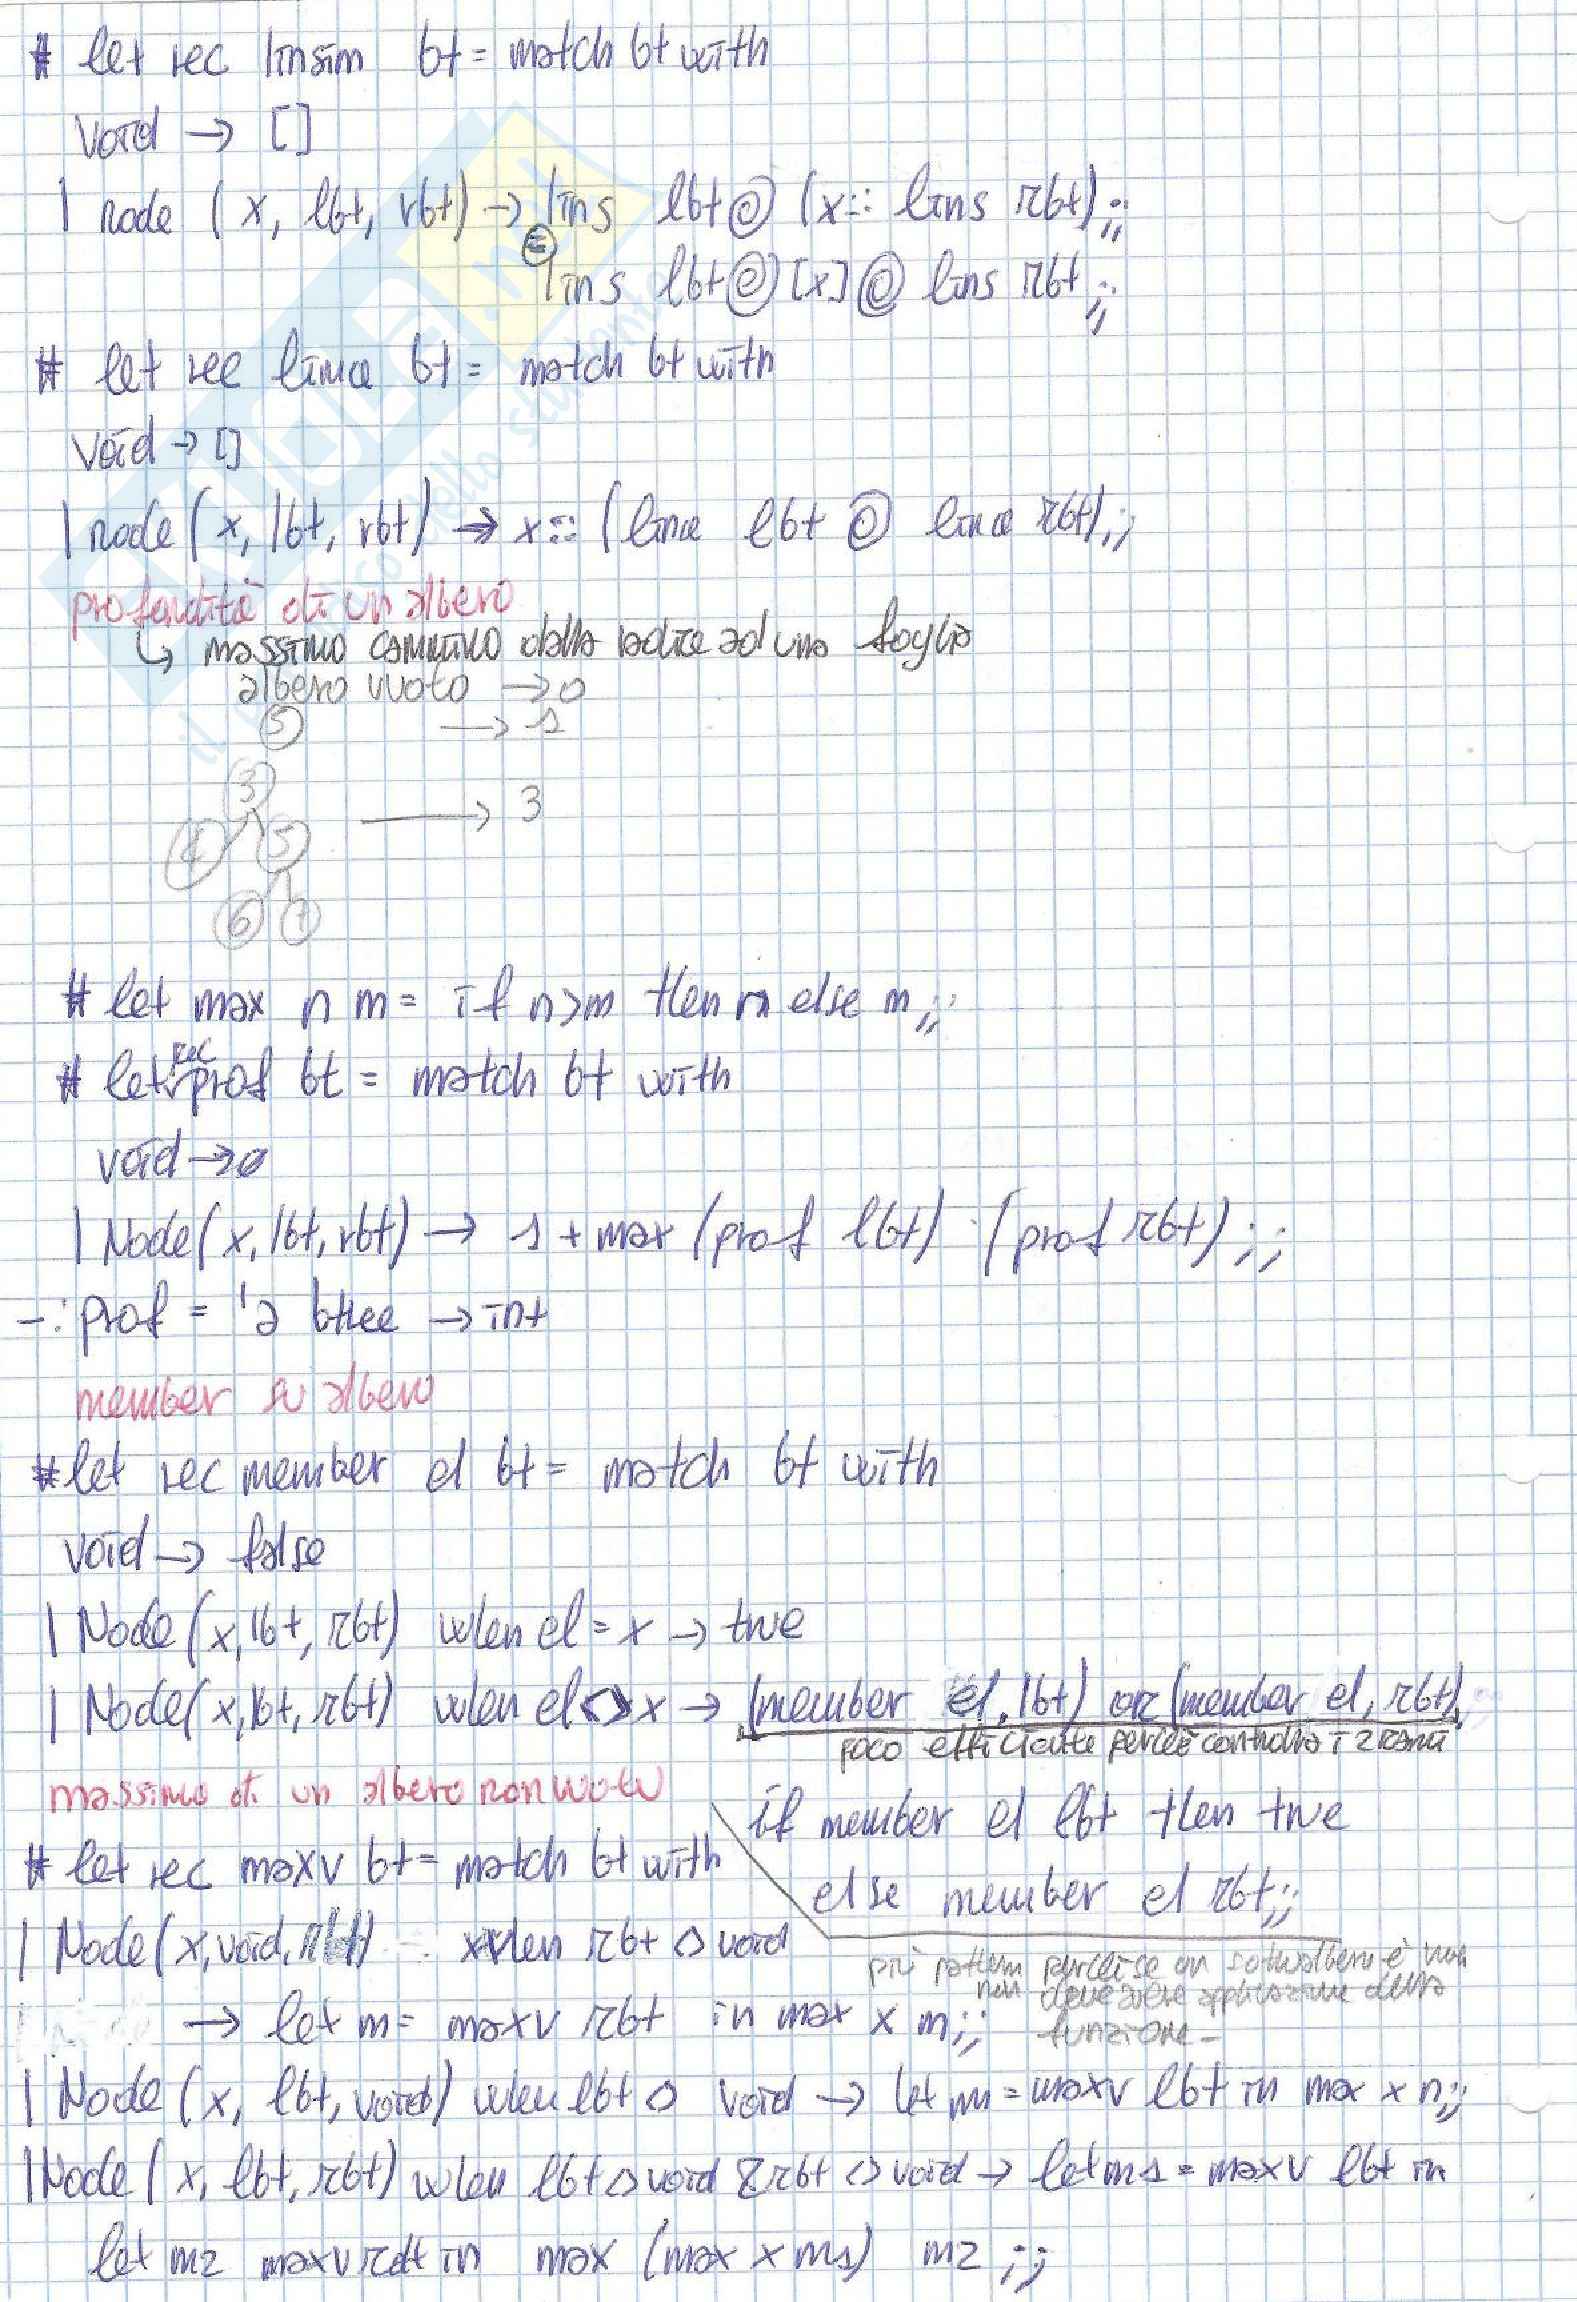 # let rec linsim bt = match bt with
void → []
| node (x, lbt, rbt) → lins lbt @ (x :: lins rbt);;
=
lins lbt @ [x] @ lins rbt;;
# let rec lina bt = match bt with
void → []
| node (x, lbt, rbt) → x :: (lina lbt @ lina rbt);;
profondità di un albero
↳ massimo cammino dalla radice ad una foglia
albero vuoto → 0
5 → 1
3
→ 3
4 5
6 7
# let max n m = if n > m then n else m;;
# let rec prof bt = match bt with
void → 0
| Node (x, lbt, rbt) → 1 + max (prof lbt) (prof rbt);;
-: prof = 'a btree → int
member su albero
# let rec member el bt = match bt with
void → false
| Node (x, lbt, rbt) when el = x → true
| Node (x, lbt, rbt) when el <> x → (member el, lbt) or (member el, rbt)
poco efficiente perché controlla i 2 rami
massimo di un albero non vuoto
if member el lbt then true
# let rec maxv bt = match bt with
else member el rbt;;
| Node (x, void, rbt) when rbt <> void
più pattern perché se un sottoalbero è
non deve avere applicazione della
→ let m = maxv rbt in max x m;;
funzione -
| Node (x, lbt, void) when lbt <> void → let m = maxv lbt in max x m;;
| Node (x, lbt, rbt) when lbt <> void & rbt <> void → let m1 = maxv lbt in
let m2 maxv rbt in max (max x m1) m2;;